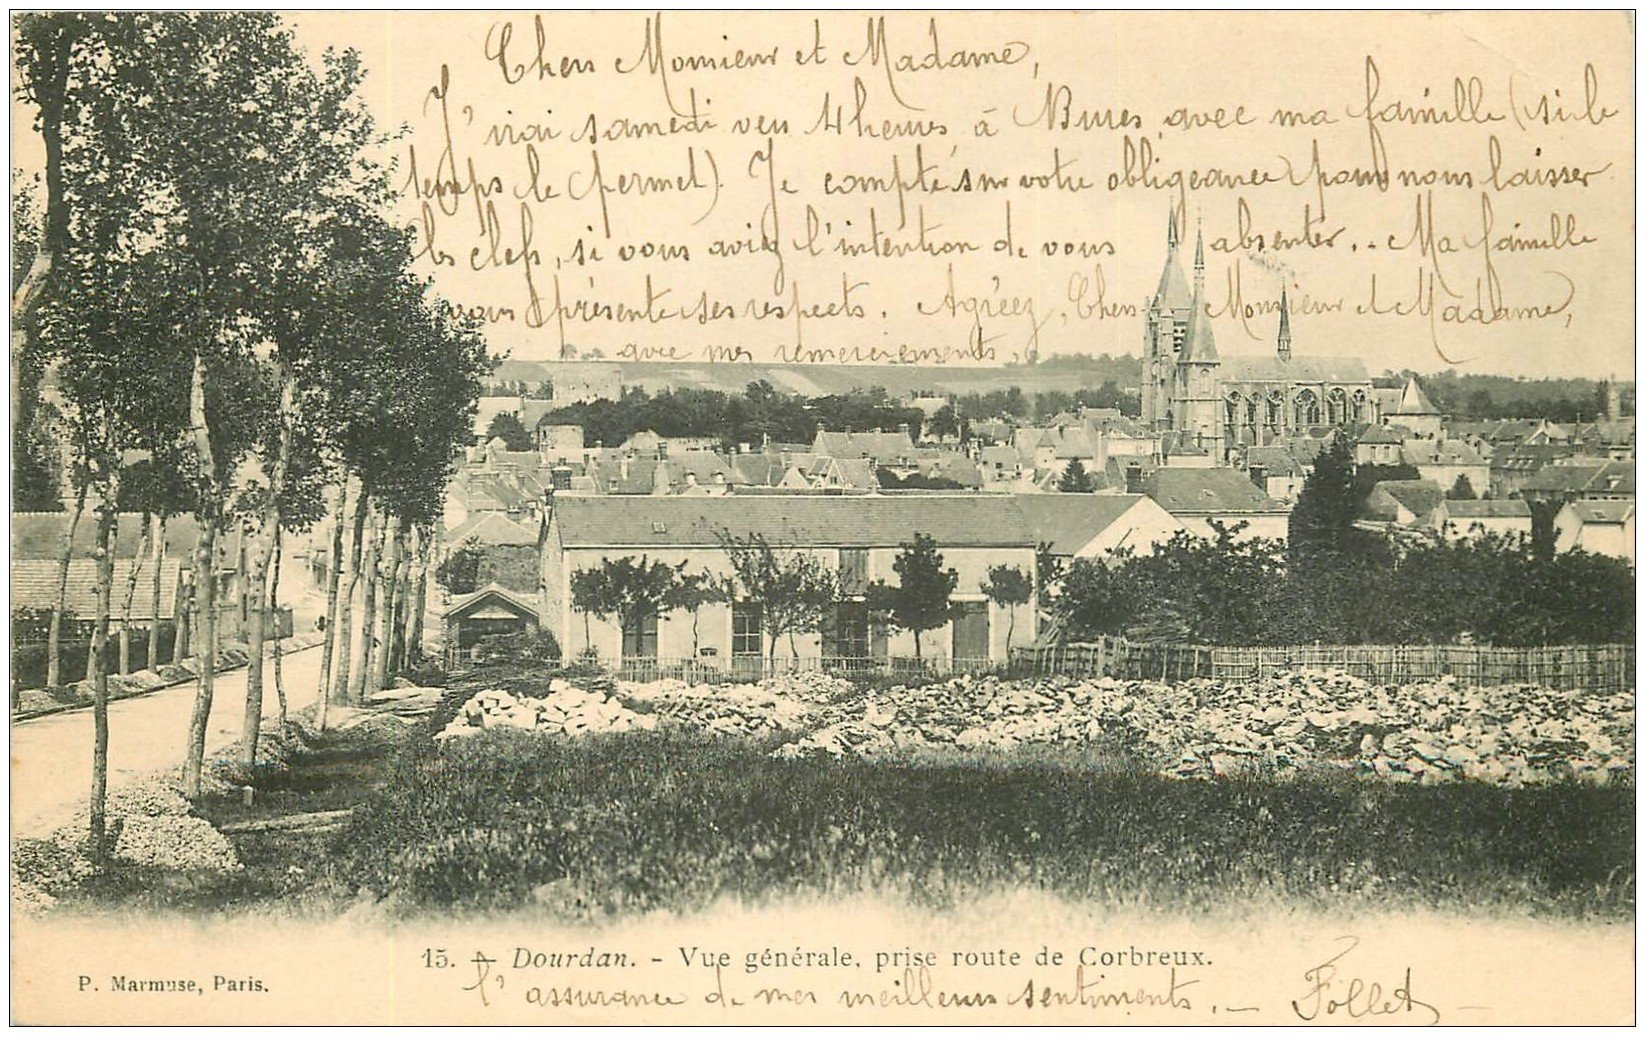 Chers Monsieur et Madame,
J'irai samedi vers 4 heures à Bures avec ma famille (si le
temps le permet). Je compte sur votre obligeance pour nous laisser
les clefs, si vous aviez l'intention de vous absenter. - Ma famille
vous présente ses respects. Agréez, Chers Monsieur et Madame,
avec mes remerciements,
15. - Dourdan. - Vue générale, prise route de Corbreux.
P. Marmuse, Paris.
l'assurance de mes meilleurs sentiments. - Follet